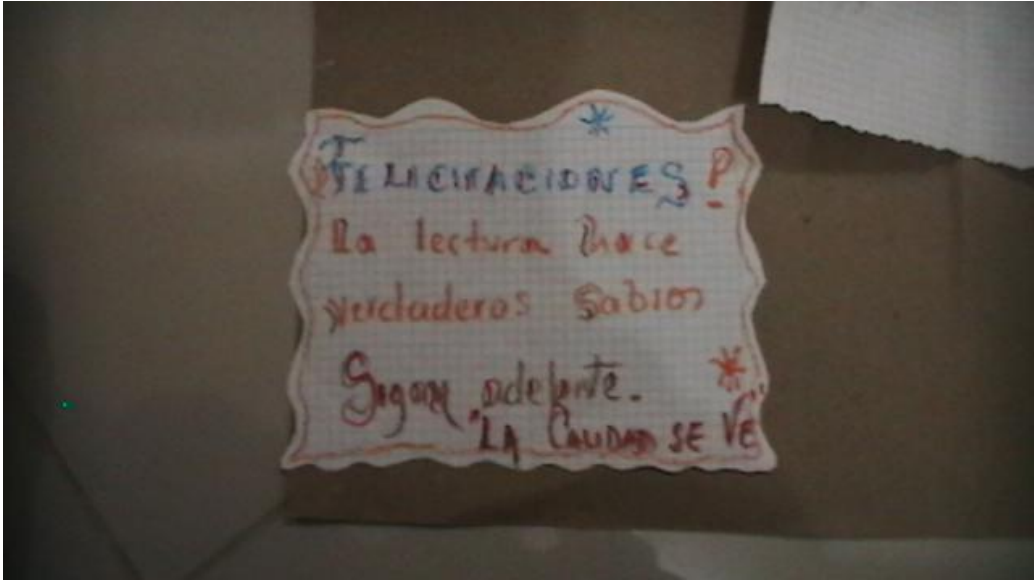 FELICITACIONES!
La lectura hace
verdaderos Sabios
Sigan adelante.
"LA CALIDAD SE VE"